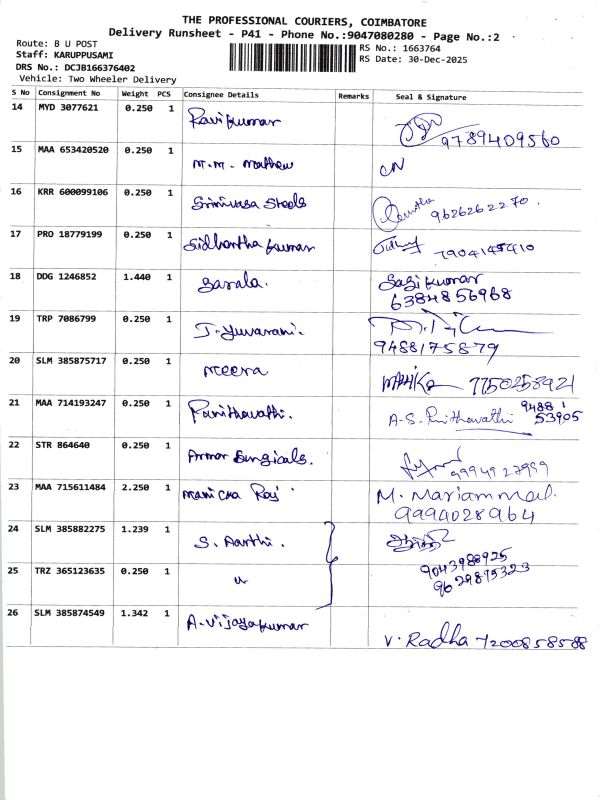 THE PROFESSIONAL COURIERS, COIMBATORE
Delivery Runsheet - P41 - Phone No.:9047080280 - Page No.:2
Route: B U POST
Staff: KARUPPUSAMI
DRS No.: DCJB166376402
Vehicle: Two Wheeler Delivery
RS No.: 1663764
RS Date: 30-Dec-2025
S No Consignment No Weight PCS Consignee Details Remarks Seal & Signature
14 MYD 3077621 0.250 1 Ravikumar 9789409560
15 MAA 653420520 0.250 1 M.M. Mathew
16 KRR 600099106 0.250 1 Srinivasa Steels 9626262270.
17 PRO 18779199 0.250 1 Sidhartha kumar 7904145410
18 DDG 1246852 1.440 1 Sarala. Sasikumar
6384856968
19 TRP 7086799 0.250 1 J. Yuvarani.
9488175879
20 SLM 385875717 0.250 1 Meera 7750258921
21 MAA 714193247 0.250 1 A-S. 94881
53905
22 STR 864640 0.250 1 Surgicals. 9994927999
23 MAA 715611484 2.250 1 Manicka Raj M. Mariammal.
9994028964
24 SLM 385882275 1.239 1 S. Aarthi.
9043988925
25 TRZ 365123635 0.250 1 " 9629875323
26 SLM 385874549 1.342 1 A. Vijayakumar V. Radha 7200858588